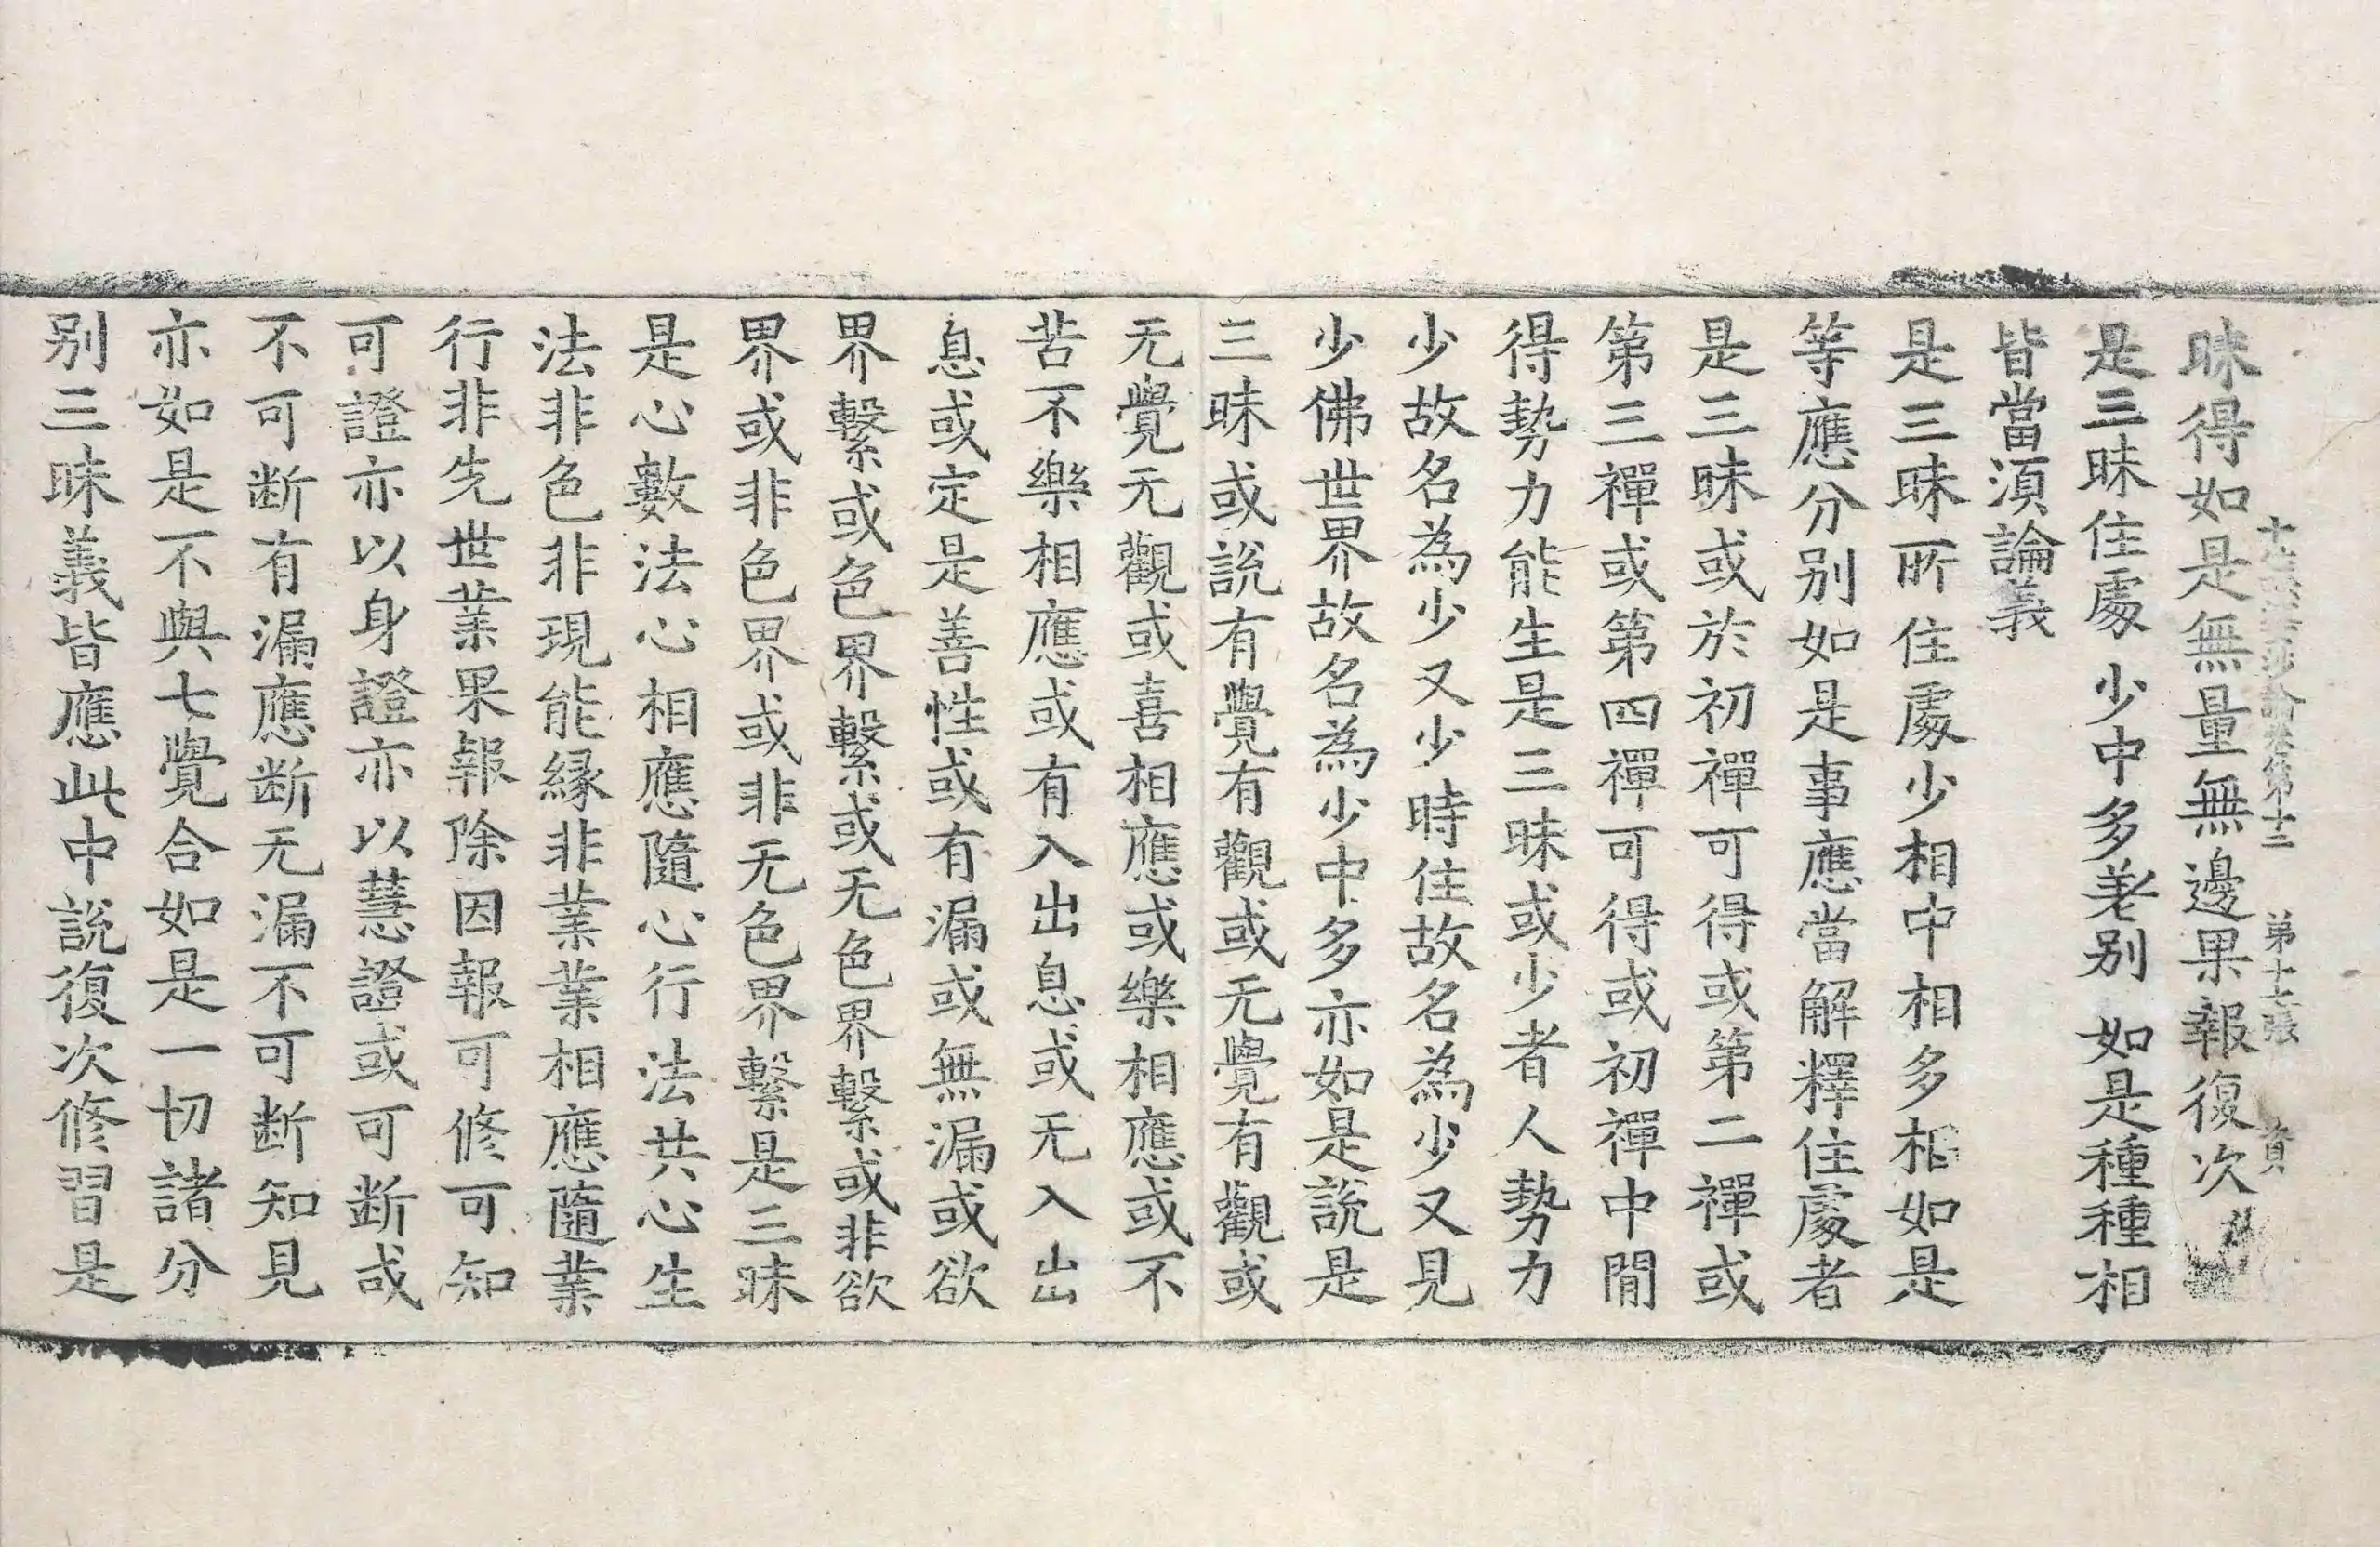 昧得如是無量無邊果報復次
十住毗婆沙論卷第十二 第十七張 資
是三昧住處 少中多差别 如是種種相
皆當湏論義
是三昧所住處少相中相多相如是
等應分别如是事應當解釋住處者
是三昧或於初禪可得或第二禪或
第三禪或第四禪可得或初禪中閒
得勢力能生是三昧或少者人勢力
少故名為少又少時住故名為少又見
少佛世界故名為少中多亦如是說是
三昧或說有覺有觀或无覺有觀或
无覺无觀或喜相應或樂相應或不
苦不樂相應或有入出息或无入出
息或定是善性或有漏或無漏或欲
界繫或色界繫或无色界繫或非欲
界或非色界或非无色界繫是三昧
是心數法心相應隨心行法共心生
法非色非現能縁非業業相應隨業
行非先世業果報除因報可修可知
可證亦以身證亦以慧證或可断或
不可断有漏應断无漏不可断知見
亦如是不與七覺合如是一切諸分
别三昧義皆應此中說復次修習是